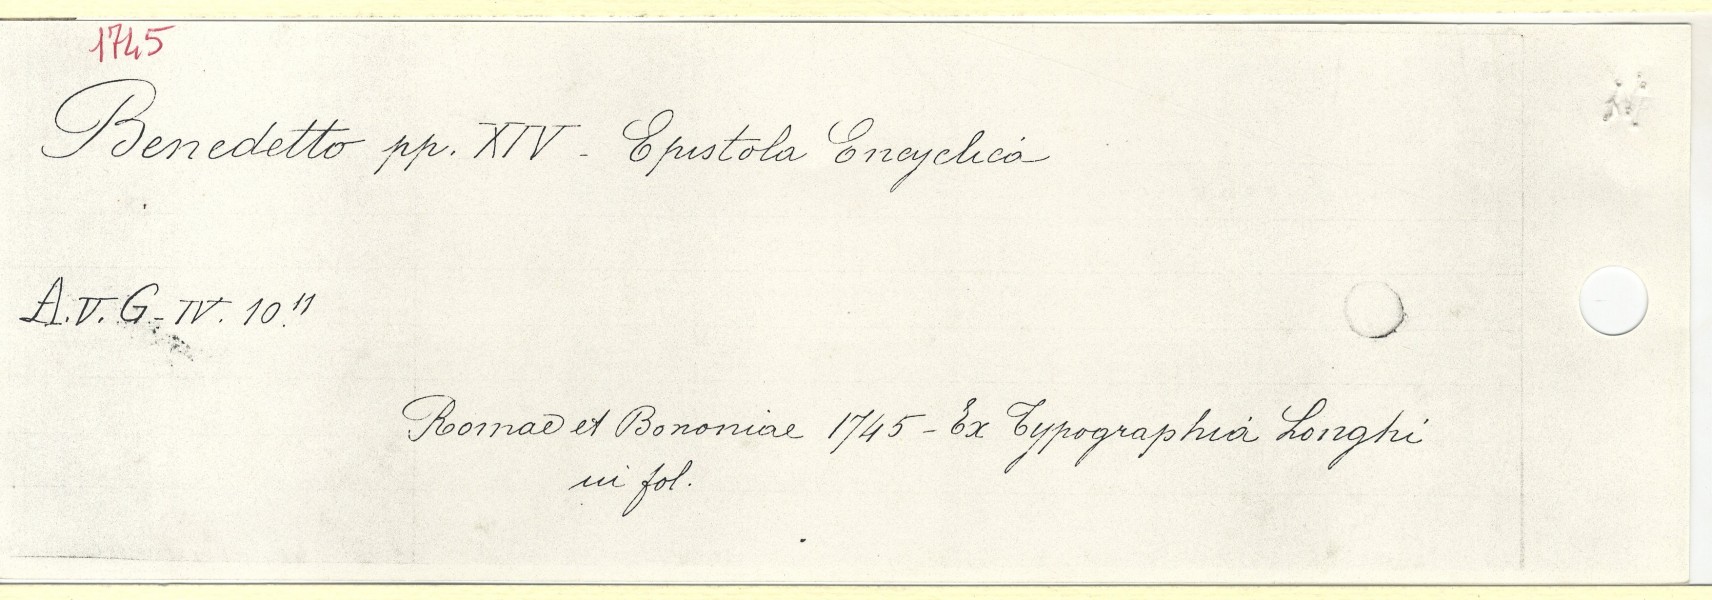 1745
Benedetto pp. XIV - Epistola Encyclica
A.V.G-IV. 10.11
Romae et Bononiae 1745 - Ex Typographia Longhi
in fol.